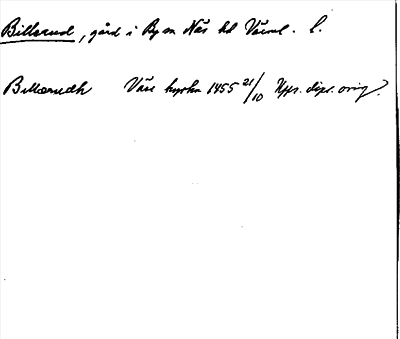 Billerud, gård i By sn Näs hd Värml. l.
Billerudh Väse kyrka 1455 21/10 Upps. dipl. orig.